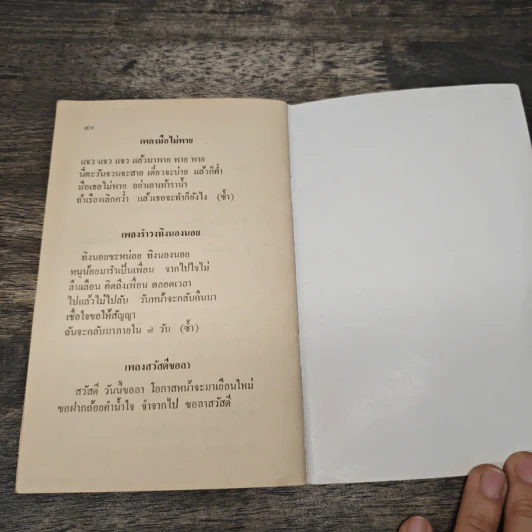 ๘๐
เพลงมือไม่พาย
แจว แจว แจว แล้วมาพาย พาย พาย
นี่ตะวันจวนจะสาย เดี๋ยวจะบ่าย แล้วก็ค่ำ
มือเธอไม่พาย อย่าเอาเท้าราน้ำ
ถ้าเรือพลิกคว่ำ แล้วเธอจะทำก็ยังไง (ซ้ำ)
เพลงรำวงทิงนองนอย
ทิงนอยชะหน่อย ทิงนองนอย
หนูน้อยมารำเป็นเพื่อน จากไปใจไม่
ลืมเลือน คิดถึงเพื่อน ตลอดเวลา
ไปแล้วไม่ไปลับ วันหน้าจะกลับคืนมา
เชื่อใจขอให้สัญญา
ฉันจะกลับมาภายใน ๗ วัน (ซ้ำ)
เพลงสวัสดีขอลา
สวัสดี วันนี้ขอลา โอกาสหน้าจะมาเยือนใหม่
ขอฝากถ้อยคำน้ำใจ จำจากไป ขอลาสวัสดี